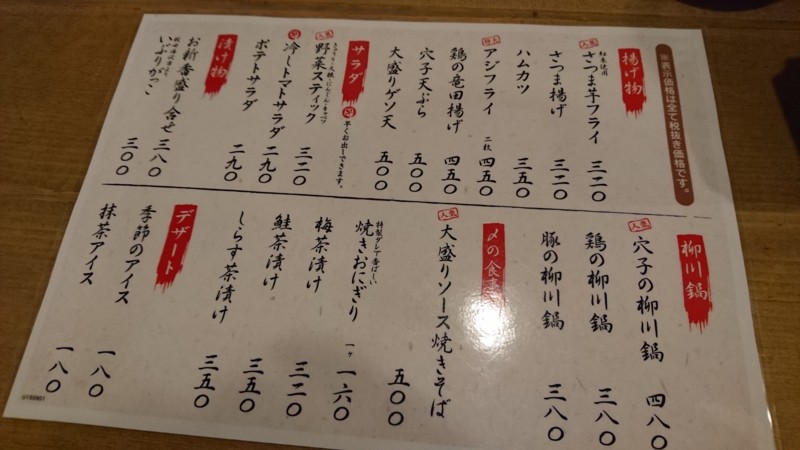 ※表示価格は全て税抜き価格です。
揚げ物
人気
紅東使用
さつま芋フライ 三二〇
さつま揚げ 三二〇
ハムカツ 三五〇
特大
アジフライ 二枚 四五〇
鶏の竜田揚げ 四五〇
穴子天ぷら 五〇〇
大盛りゲソ天 五〇〇
サラダ
早くお出しできます。
人気
野菜スティック 三二〇
冷しトマトサラダ 二九〇
ポテトサラダ 二九〇
漬け物
お新香盛り合せ 三八〇
いぶりがっこ 三〇〇
柳川鍋
人気
穴子の柳川鍋 四八〇
鶏の柳川鍋 三八〇
豚の柳川鍋 三八〇
〆の食事
人気
大盛りソース焼きそば 五〇〇
特製ダレで香ばしい
焼きおにぎり 一ヶ 一六〇
梅茶漬け 三二〇
鮭茶漬け 三五〇
しらす茶漬け 三五〇
デザート
季節のアイス 一八〇
抹茶アイス 一八〇